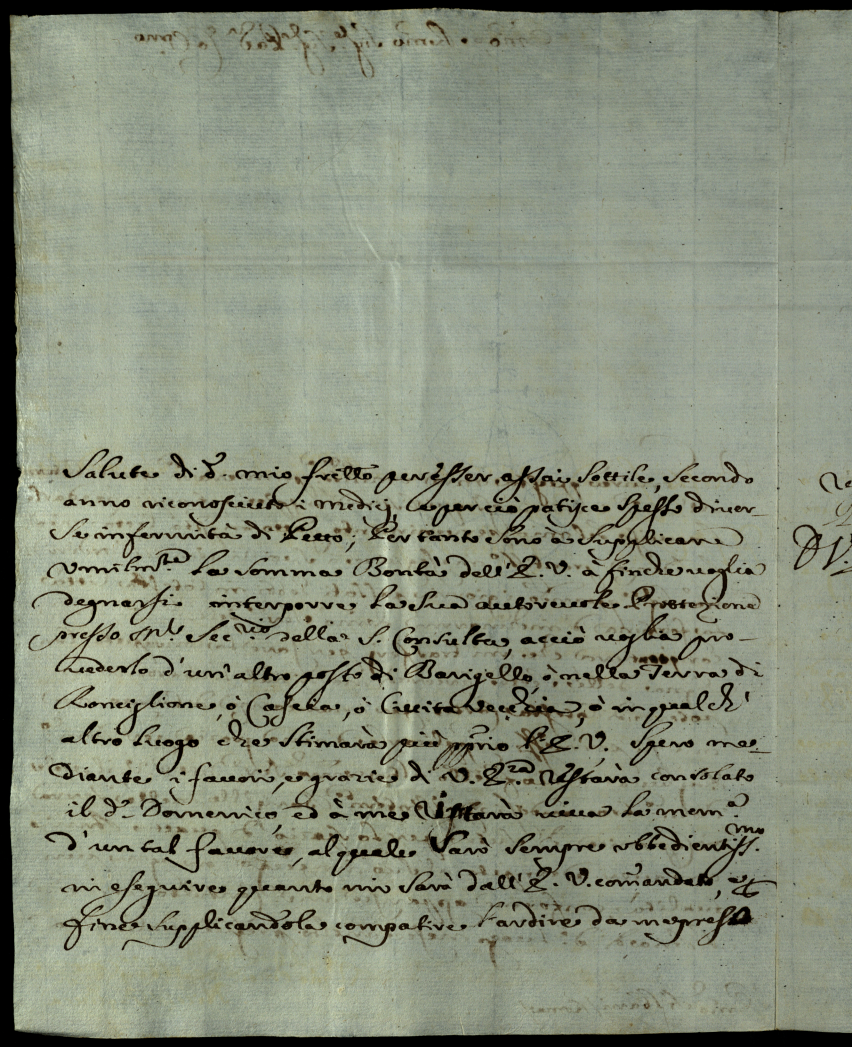 Salute di d.º mio frīllo per esser assai sottile, secondo
anno riconosciuto i medici, e perciò patisce spesso diver-
se infermità di Petto; Per tanto sono à supplicare
umilm.te la somma Bontà dell' E. V. à finche voglia
degnarsi interporre la sua autorevole Protezzione
presso M.r Sec.rio della S. Consulta, acciò voglia pro-
vederlo d'un' altro posto di Barigello, ò nella Terra di
Ronciglione, ò Casera, ò Civita Vecchia, ò in qualch'
altro luogo che stimarà più pp̄rio l'E. V. Spero me-
diante i favori, e grazie di V. E.za restarà consolato
il d.º Domenico, ed à me restarà viva la mem.a
d'un tal favore, al quale sarò sempre obbedientiss.mo
in eseguire quanto mi sarà dall' E. V. com̄andato, e
fine supplicandola compatire l'ardire da me preso